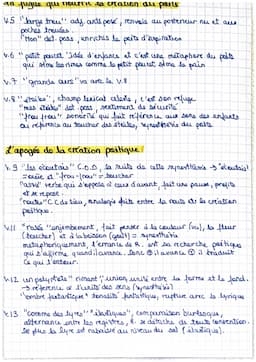 la fugue qui nourrit la création du poète
v.5 "larges trou" adj. antéposé, renvois au postérieur nu et aux
poches trouées.
"Mon" dét. poss, enrichis le poète d'inspiration
v.6 "petit poucet" idée d'enfance et c'est une métaphore du poète
qui sème les rimes comme le petit poucet sème le pain
v.7 "grande ours" va avec le v.8
v.8 "étoiles", champ lexical céleste, c'est son refuge
"mes étoiles" dét poss, sentiment de sécurité
"frou-frou" sonorité qui fait référence aux sons des enfants
ou référence au toucher des étoiles, synesthésie du poète.
L'apogée de la création poétique
v.9 "les écoutais" C.O.D, la suite de cette synesthésie → "écoutais"
= ouïe et "frou-frou" = toucher
"assis" verbe qui s'oppose à ceux d'avant, fait une pause, profite
et se repose.
"routes" C.C de lieu, analogie faite entre la route et la création
poétique.
v.11 "rosée" enjambement, fait penser à la couleur (vu), la fleur
(toucher) et à la boisson (goût) = synesthésie
métaphoriquement, l'errance de R. est sa recherche poétique
qui s'affirme quand il avance. Sens ① il avance ② il traduit
ce qui l'entoure.
v.12 un polyptote "rimant", union unité entre la forme et le fond.
→ référence à l'unité des sens (synesthésie)
"ombre fantastique" tonalité fantastique, rupture avec le lyrique
v.13 "comme des lyres" "élastiques", comparaison burlesque,
alternance entre les registres, R. se détache de toute convention.
De plus la lyre est rabaissée au niveau du sol (élastique).